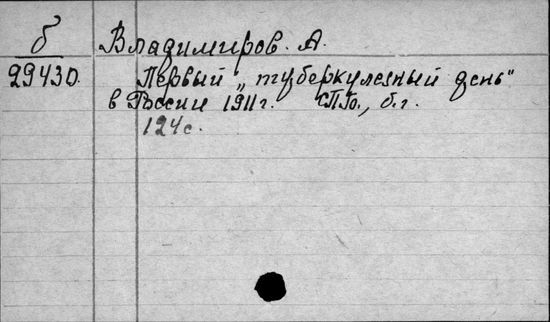 б Владимиров. А.
29430. Первый „туберкулезный день"
в России 1911г. СПб., б.г.
124с.